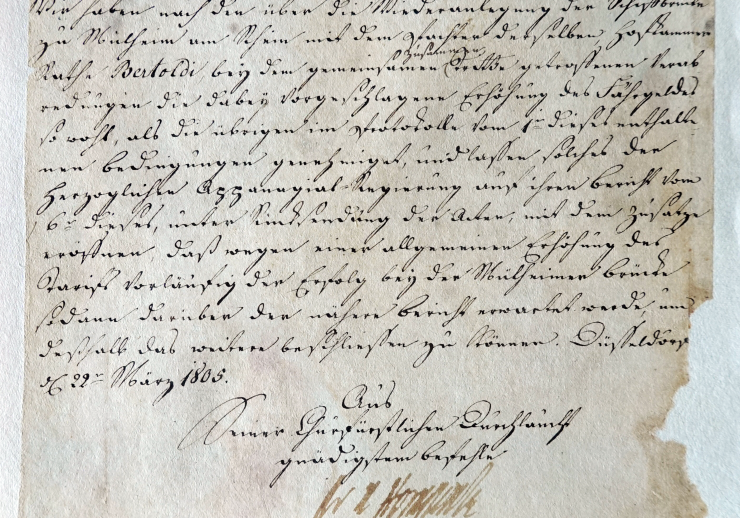 Wir haben nach den über die Wiederanlegung der Schiffbrücke
zu Mülheim am Rhein mit dem Pachter derselben Hofkammer
Rathe Bertoldi, bey dem gemeinsamen Zusammen Tritte getroffenen Verab
redungen die dabey vorgeschlagene Erhöhung des Fährgeldes
so wohl, als die übrigen im Protokolle vom 1ten dieses enthalte
nen bedingungen genehmiget, und lassen solches der
Herzoglichen Appanagial-Regierung auf ihren bericht vom
6ten dieses, unter Rücksendung der Acten, mit dem Zusatze
eröffnen, daß wegen einer allgemeinen Erhöhung des
Tarifs vorläufig der Erfolg bey der Mülheimer brücke
sodann darüber der nähere bericht erwartet werde, um
deßhalb das weitere beschliessen zu können. Düsseldorf
22ten März 1805.
Aus
Seiner Churfürstlichen Durchlaucht
gnädigstem befehle